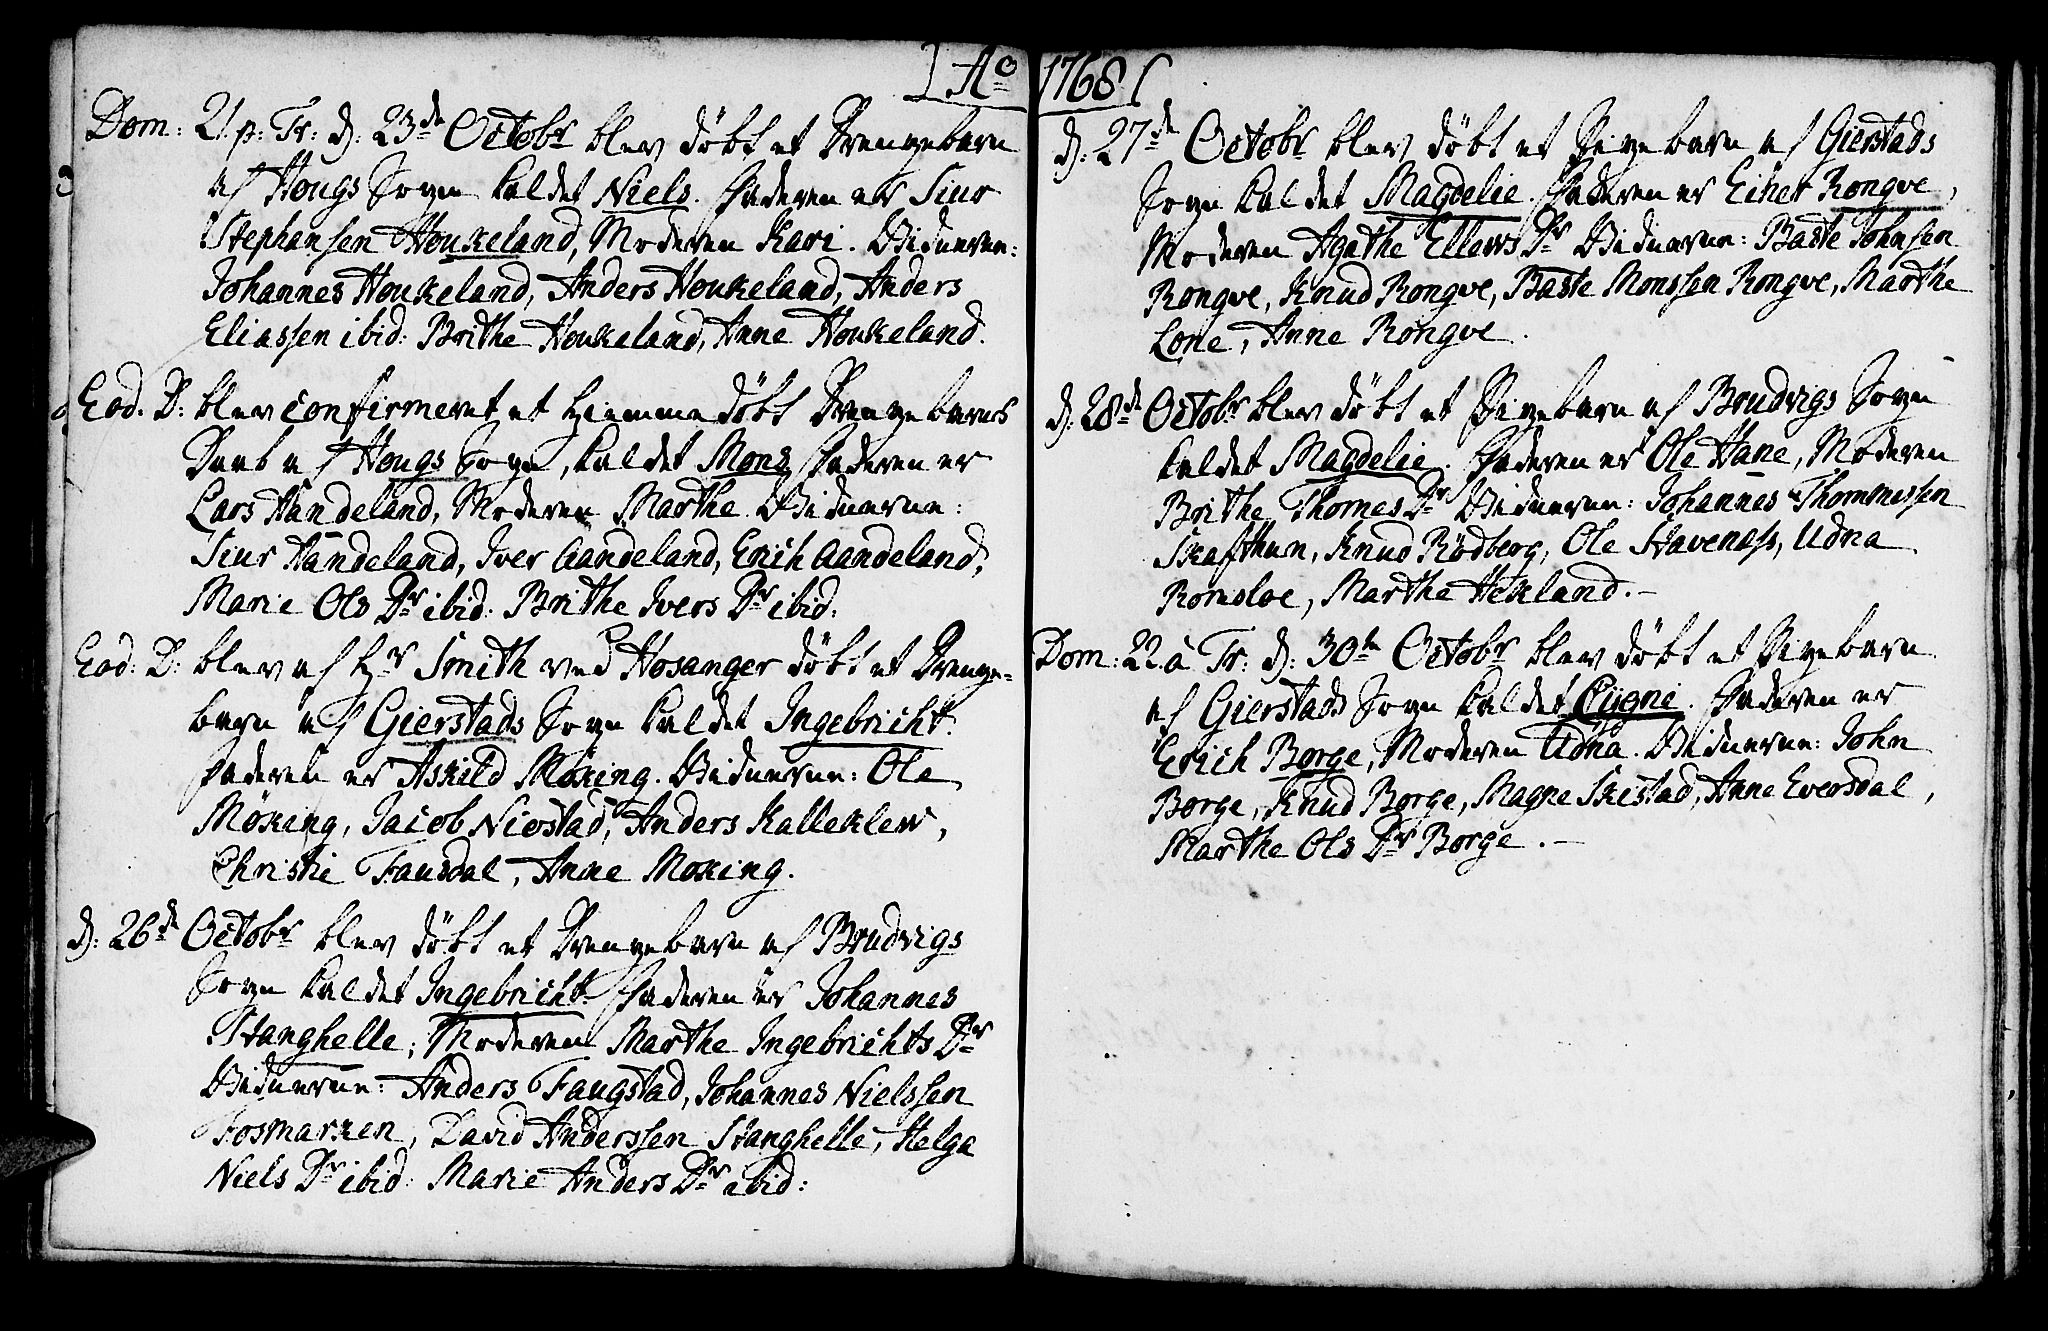 Ao 1768
Dom: 21. p: Tr: d: 23de Octobr blev döbt et Drengebarn
af Hougs Sogn kaldet Niels. Faderen er Siur
Stephansen Houkeland, Moderen Kari. Vidnerne:
Johannes Houkeland, Anders Houkeland, Anders
Eliassen ibid: Brithe Houkeland, Anne Houkeland.
Eod. D: blev confirmeret et hiemme döbt Drengebarns
Daab af Hougs Sogn, kaldet Mons Faderen er
Lars Handeland, Moderen Marthe. Vidnerne:
Siur Handeland, Iver Aandeland, Erich Aandeland,
Marie Ols Dr ibid: Brithe Ivers Dr ibid:
Eod: D: blev af Hr Smith ved Hosanger döbt et Drenge-
barn af Gierstads Sogn kaldet Ingebricht.
Faderen er Askild Möking. Vidnerne: Ole
Möking, Jacob Niostad, Anders Kalleklew,
Christie Fausdal, Anne Moking.
d: 26de Octobr blev döbt et Drengebarn af Brudvigs
Sogn kaldet Ingebricht. Faderen er Johannes
Stanghelle; Moderen Marthe Ingebrichts Dr
Vidnerne: Anders Faugstad, Johannes Nielssen
Fosmarken, David Anderssen Stanghelle, Helga
Niels Dr ibid: Marie Anders Dr ibid:
d: 27de Octobr blev döbt et Pigebarn af Gierstads
Sogn kaldet Magdelie. Faderen er Einer Rongve,
Moderen Agathe Ellews Dr Vidnerne: Baste Johnsen
Rongve, Knud Rongve, Baste Monssen Rongve, Marthe
Lone, Anne Rongve.
d: 28de Octobr blev döbt et Pigebarn af Brudvigs Sogn
kaldet Magdelie. Faderen er Ole Hane, Moderen
Brithe Thomes Dr Vidnerne: Johannes Thommessen
Skafthun, Knud Rödberg, Ole Havenæss, Udna
Romsloe, Marthe Hekland.-
Dom: 22 a Tr: d: 30te Octobr blev döbt et Pigebarn
af Gierstads Sogn kaldet. Faderen er
Erich Borge, Moderen Udna. Vidnerne: John
Borge, Knud Borge, Magne Skistad, Anne Eversdal,
Marthe Ols Dr Borge.-